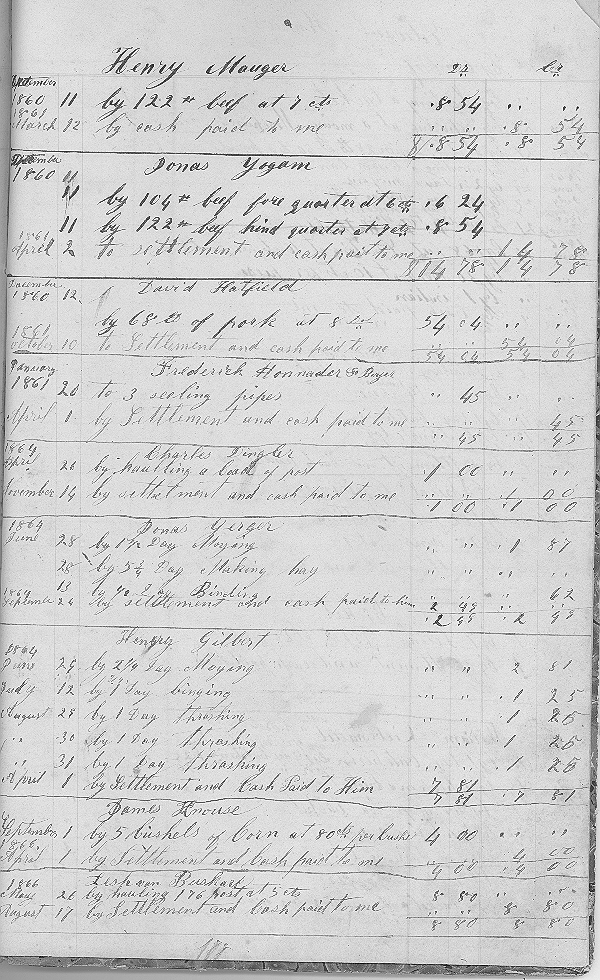 Henry Mauger Dr Cr
September
1860 11 by 122 lb beef at 7 cts .8 54 " "
1861
March 12 by cash paid to me " " .8 54
$.8 54 .8 54
1860 Jonas Yogam
11 by 104 lb beef fore quarter at 6 cts .6 24
11 by 122 lb beef hind quarter at 7 cts .8 54
1861
April 2 to settlement and cash paid to me " " 14 78
$14 78 14 78
December
1860 12 David Hatfield
by 68 of pork at 8 54 04 " "
1861
October 10 to Settlement and cash paid to me 54 04
54 04 54 04
January Frederick Honnader Boyer
1861 20 to 3 seeling pipes " 45 " "
April 1 by Settlement and cash paid to me " " " 45
" 45 " 45
1864 Charles Dingler
April 26 by hauling a load of post .1 00 " "
November 14 by settalment and cash paid to me " " .1 00
.1 00 .1 00
1864 Jonas Yerger
June 28 by 1½ Day Moying " " .1 87
28 by Day Making hay " " " "
13 by ½ Day Binding " " " 62
1864
September 24 by settlement and cash paid to him 2 49 " "
.2 49 .2 49
Henry Gilbert
1864
June 29 by 2¼ Day Moying " " 2 81
July 12 by 1 Day binging " " .1 25
August 29 by 1 Day thrashing " " .1 25
" 30 by 1 Day thrashing " " .1 25
" 31 by 1 Day thrasching " " 25
April 1 by Settlement and Cash Paid to Him 7 81
7 81 .7 81
James Knouse
September 1 by 5 bushels of Corn at 80 cts per bushe 4 00 " "
1866
April 1 by Settlement and Cash paid to me 4 00
4 00 .4 00
1866
May 26 by hauling 176 post at 5 cts 8 80 " "
August 17 by Settlement and Cash paid to me " " 8 80
8 80 8 80